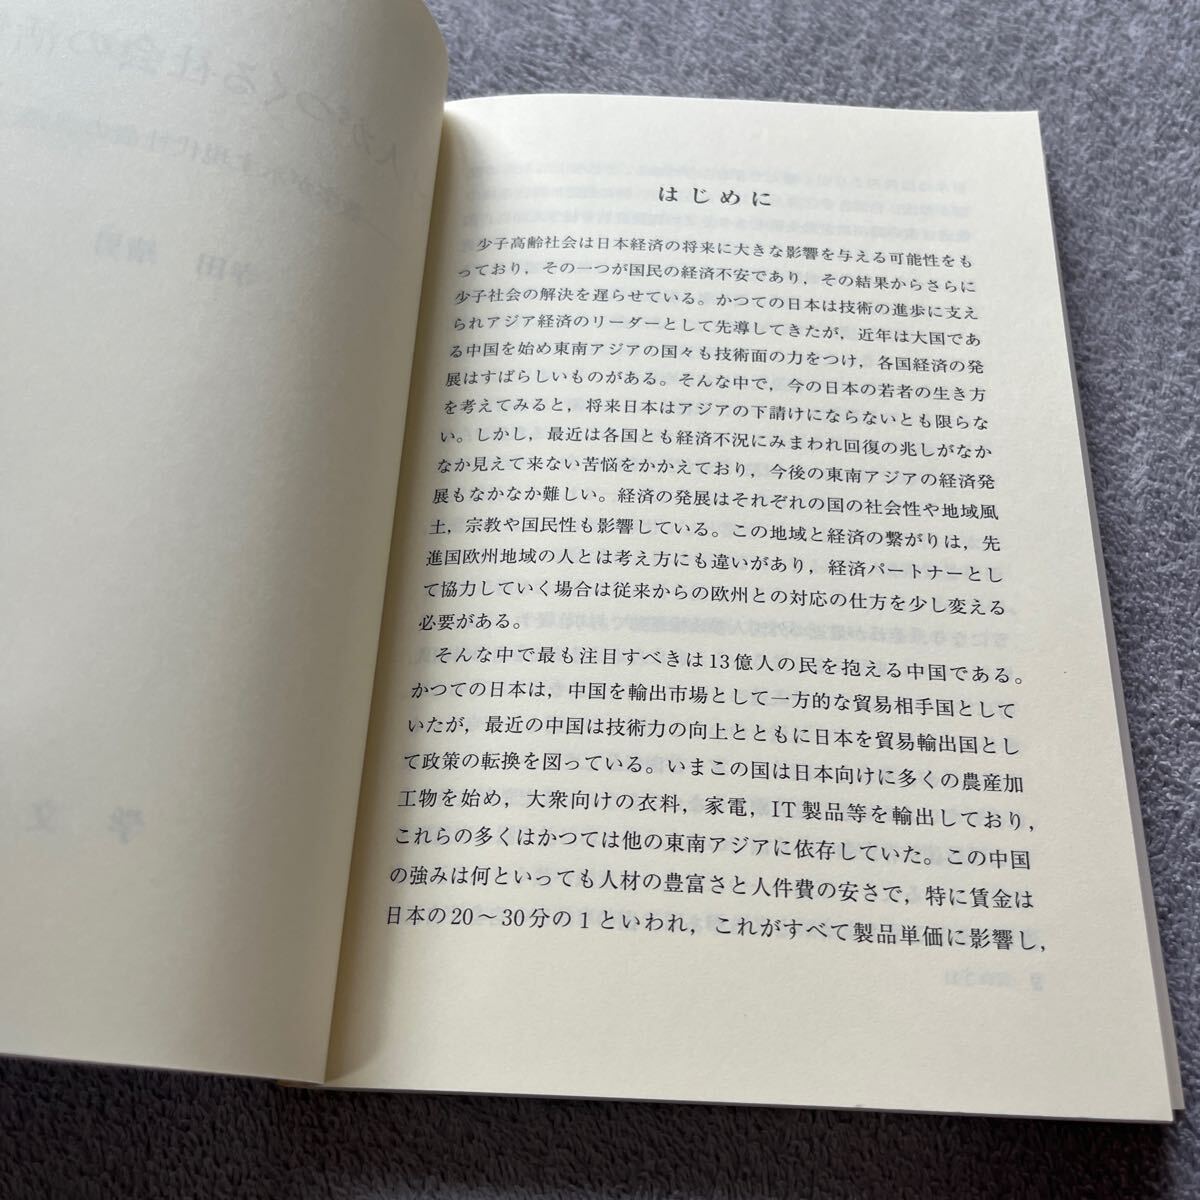 はじめに
少子高齢社会は日本経済の将来に大きな影響を与える可能性をも
っており，その一つが国民の経済不安であり，その結果からさらに
少子社会の解決を遅らせている。かつての日本は技術の進歩に支え
られアジア経済のリーダーとして先導してきたが，近年は大国であ
る中国を始め東南アジアの国々も技術面の力をつけ，各国経済の発
展はすばらしいものがある。そんな中で，今の日本の若者の生き方
を考えてみると，将来日本はアジアの下請けにならないとも限らな
い。しかし，最近は各国とも経済不況にみまわれ回復の兆しがなか
なか見えて来ない苦悩をかかえており，今後の東南アジアの経済発
展もなかなか難しい。経済の発展はそれぞれの国の社会性や地域風
土，宗教や国民性も影響している。この地域と経済の繋がりは，先
進国欧州地域の人とは考え方にも違いがあり，経済パートナーとし
て協力していく場合は従来からの欧州との対応の仕方を少し変える
必要がある。
そんな中で最も注目すべきは13億人の民を抱える中国である。
かつての日本は，中国を輸出市場として一方的な貿易相手国として
いたが，最近の中国は技術力の向上とともに日本を貿易輸出国とし
て政策の転換を図っている。いまこの国は日本向けに多くの農産加
工物を始め，大衆向けの衣料，家電，IT製品等を輸出しており，
これらの多くはかつては他の東南アジアに依存していた。この中国
の強みは何といっても人材の豊富さと人件費の安さで，特に賃金は
日本の20～30分の1といわれ，これがすべて製品単価に影響し，